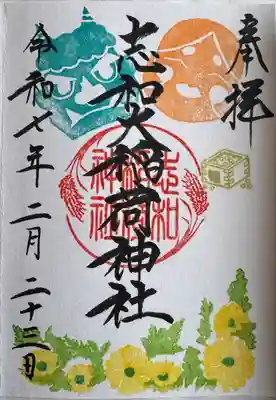 奉拝
志和稲荷神社
志和
稲荷
神社
令和七年二月二十三日